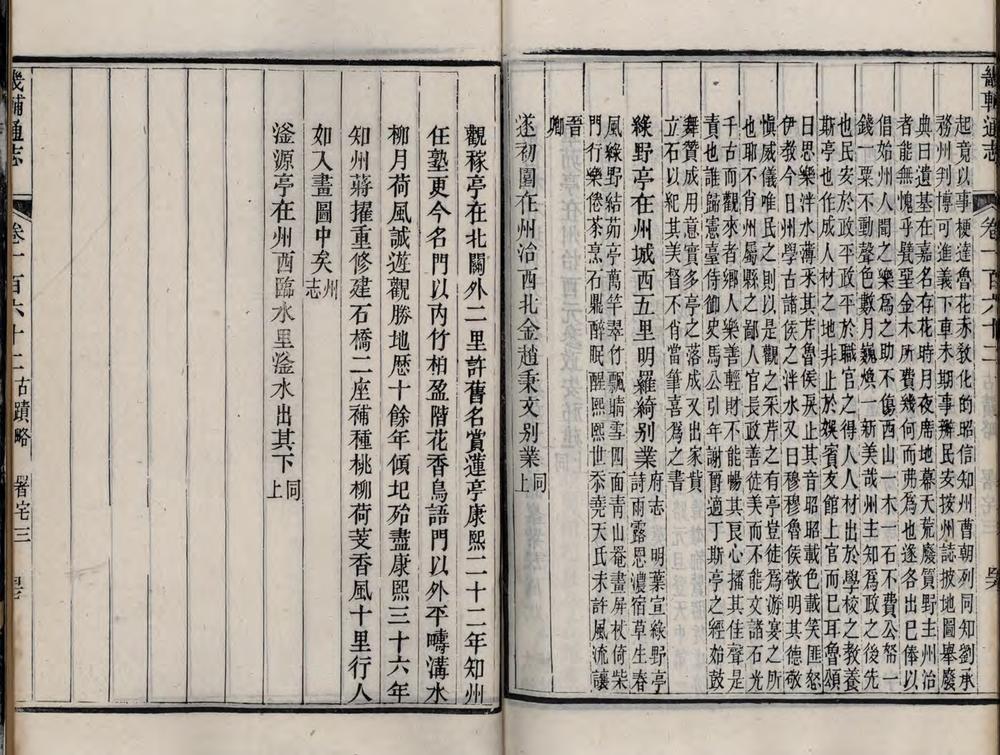 畿輔通志
卷一百六十二
起竟以事梗達魯花赤教化的昭信知州曹朝列同知劉承
務州判博可進義下車未期事辦民安按州誌披地圖舉廢
典曰遺基在嘉名存花時月夜席地幕天荒廢質野主州治
者能無愧乎甓堊金木所費幾何而弗為也遂各出已俸以
倡始州人聞之樂為之助不傷西山一木一石不費公帑一
錢一粟不動聲色數月巍煥一新美哉州主知為政之後先
也民安於政平政平於職官之得人人材出於學校之教養
斯亭也作成人材之地非止於娛賓友館上官而已耳魯頌
曰思樂泮水薄采其芹魯侯戾止其音昭昭載色載笑匪怒
伊教今日州學古諸侯之泮水又曰穆穆魯侯敬明其德敬
慎威儀唯民之則以是觀之采芹之有亭豈徒為游宴之所
也耶不肖州屬縣之鄙人官長政善徒美而不能文諸石光
千古而觀來者鄉人樂善輕財不能暢其良心播其佳聲是
責也誰歸憲臺侍御史馬公引年謝舊適丁斯亭之經始鼓
舞贊成用意實多亭之落成又出家貲
立石以紀其美督不肖當筆喜為之書
綠野亭在州城西五里明羅綺別業府志 明葉宣綠野亭詩雨露恩濃宿草生春
風綠野結茆亭萬竿翠竹飄晴雪四面青山罨畫屏杖倚柴
門行樂倦茶烹石鼎醉眠醒熙熙世忝堯天民未許風流讓
晉卿
遂初園在州治西北金趙秉文別業同上
觀稼亭在北關外二里許舊名賞蓮亭康熙二十二年知州
任塾更今名門以內竹柏盈階花香鳥語門以外平疇溝水
柳月荷風誠遊觀勝地歷十餘年傾圮殆盡康熙三十六年
知州蔣擢重修建石橋二座補種桃柳荷芰香風十里行人
如入畫圖中矣州志
滏源亭在州西臨水里滏水出其下同上
畿輔通志
卷一百六十二 古蹟略 署宅三